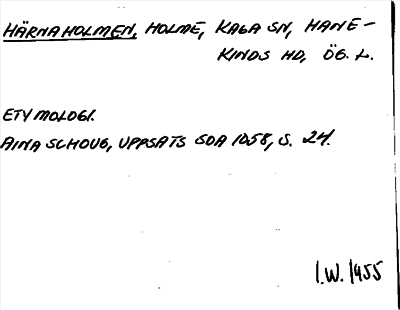 HÄRNAHOLMEN, HOLME, KAGA SN, HANE-
KINDS HD, ÖG. L.
ETYMOLOGI.
AINA SCHOUG, UPPSATS SOA 1058, S. 24.
I.W. 1955